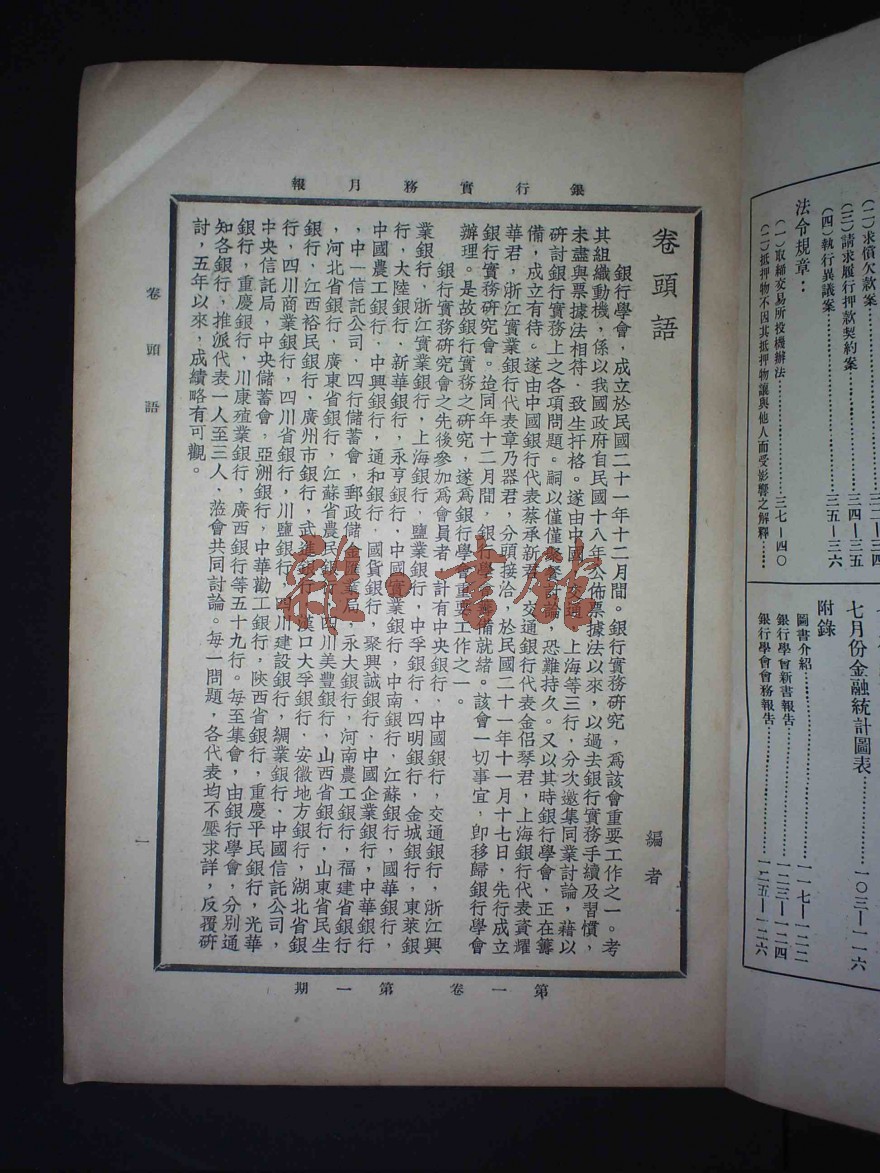 （二）求償欠款案……三二—三四
（三）請求履行押款契約案……三四—三五
（四）執行異議案……三五—三六
法令規章：
（一）取締交易所投機辦法……三七—四〇
（二）抵押物不因其抵押物讓與他人而受影響之解釋……
七月份金融統計圖表……一〇三—一一六
附錄
圖書介紹……一一七—一二二
銀行學會新書報告……一二三—一二四
銀行學會會務報告……一二五—一二六
銀行實務月報
卷頭語
編者
銀行學會，成立於民國二十一年十二月間。銀行實務研究，爲該會重要工作之一。考
其組織動機，係以我國政府自民國十八年公佈票據法以來，以過去銀行實務手續及習慣，
未盡與票據法相符，致生扞格。遂由中國，交通，上海等三行，分次邀集同業討論，藉以
研討銀行實務上之各項問題。嗣以僅僅聚餐討論，恐難持久。又以其時銀行學會，正在籌
備，成立有待。遂由中國銀行代表蔡承新君，交通銀行代表金侶琴君，上海銀行代表資耀
華君，浙江實業銀行代表章乃器君，分頭接洽，於民國二十一年十一月十七日，先行成立
銀行實務研究會。迨同年十二月間，銀行學會籌備就緒。該會一切事宜，卽移歸銀行學會
辦理。是故銀行實務之研究，遂爲銀行學會重要工作之一。
銀行實務研究會之先後參加爲會員者，計有中央銀行，中國銀行，交通銀行，浙江興
業銀行，浙江實業銀行，上海銀行，鹽業銀行，中孚銀行，四明銀行，金城銀行，東萊銀
行，大陸銀行，新華銀行，永亨銀行，中國實業銀行，中南銀行，江蘇銀行，國華銀行，
中國農工銀行，中興銀行，通和銀行，國貨銀行，聚興誠銀行，中國企業銀行，中華銀行
，中一信託公司，四行儲蓄會，郵政儲金匯業局，永大銀行，河南農工銀行，福建省銀行
，河北省銀行，廣東省銀行，江蘇省農民銀行，四川美豐銀行，山西省銀行，山東省民生
銀行，江西裕民銀行，廣州市銀行，武進銀行，漢口大孚銀行，安徽地方銀行，湖北省銀
行，四川商業銀行，四川省銀行，川鹽銀行，四川建設銀行，綢業銀行，中國信託公司，
中央信託局，中央儲蓄會，亞洲銀行，中華勸工銀行，陝西省銀行，重慶平民銀行，光華
銀行，重慶銀行，川康殖業銀行，廣西銀行等五十九行。每至集會，由銀行學會，分別通
知各銀行，推派代表一人至三人，蒞會共同討論。每一問題，各代表均不壓求詳，反覆研
討，五年以來，成績略有可觀。
第一卷 第一期
卷頭語
一
雜·書館